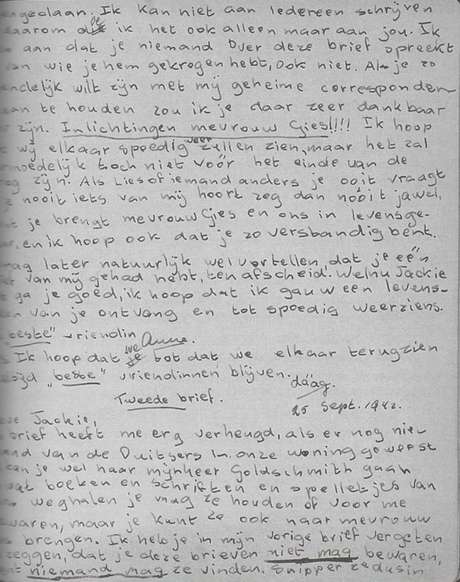 ngedaan. Ik kan niet aan iedereen schrijven
aarom doe ik het ook alleen maar aan jou. Ik
aan dat je niemand over deze brief spreekt
an wie je hem gekrogen hebt, ook niet. Als je zo
ndelijk wilt zijn met mij geheime corresponden-
an te houden zou ik je daar zeer dankbaar
zijn. Inlichtingen mevrouw Gies!!!! Ik hoop
wij elkaar spoedig weer zullen zien, maar het zal
moedelijk toch niet vóór het einde van de
og zijn. Als Lies of iemand anders je ooit vraagt
je nooit iets van mij hoort zeg dan nóóit jawel,
t je brengt mevrouw Gies en ons in levensge-
, en ik hoop ook dat je zo verstandig bent.
ag later natuurlijk wel vertellen dat je één
van mij gehad hebt, ten afscheid. Welnu Jackie
ga je goed, ik hoop dat ik gauw een levens-
en van je ontvang en tot spoedig weerziens.
"beste" vriendin Anne.
Ik hoop dat we tot dat we elkaar terugzien
tijd "beste" vriendinnen blijven.
dáág.
Tweede brief. 25 Sept. 1942.
eve Jackie,
brief heeft me erg verheugd, als er nog nie-
and van de Duitsers in onze woning geweest
an je wel naar mijnheer Goldschmith gaan
wat boeken en schriften en spelletjes van
weghalen je mag ze houden of voor me
waren, maar je kunt ze ook naar mevrouw
brengen. Ik heb je in mijn vorige brief vergeten
zeggen, dat je deze brieven niet mag bewaren,
nt niemand mag ze vinden. Snipper ze dus in